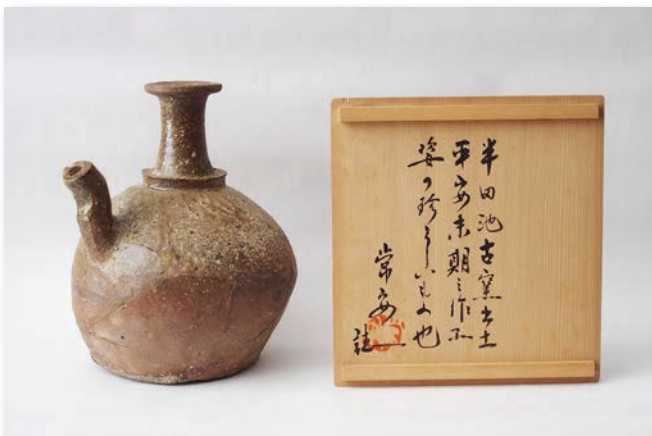 半田池古窯出土
平安末期之作而
姿の珍らしいもの也
常安
誌